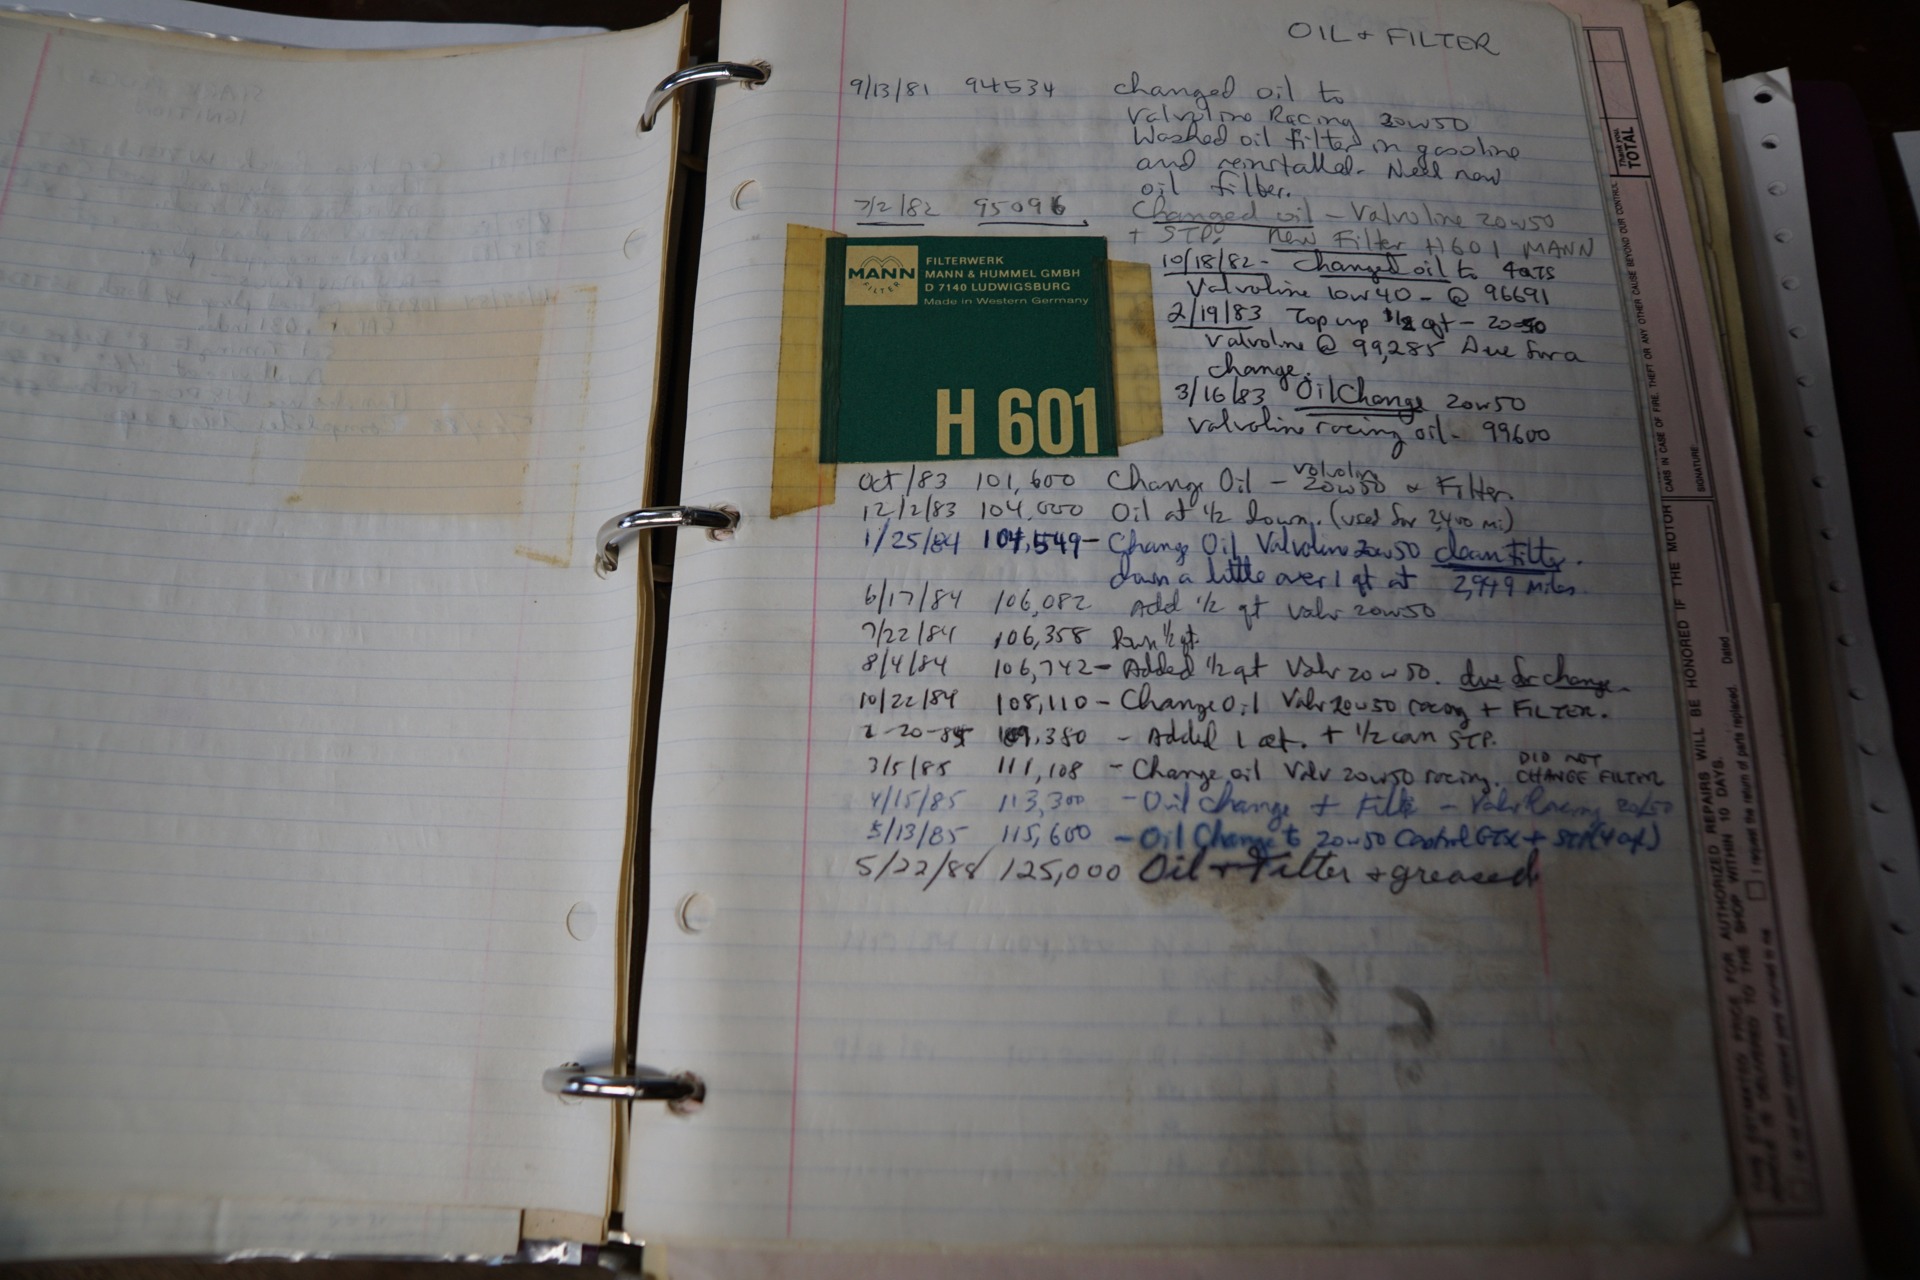 OIL & FILTER
9/13/81 94534 changed oil to
Valvoline Racing 20w50
Washed oil filter in gasoline
and reinstalled. Need new
oil filter.
7/2/82 95096 Changed oil - Valvoline 20w50
+ STP. New Filter H601 MANN
10/18/82 - Changed oil to 4qts
Valvoline 10w40 - @ 96691
2/19/83 Top up 1/2 qt - 20-50
Valvoline @ 99,285 Due for a
change.
3/16/83 Oil Change 20w50
Valvoline racing oil - 99600
MANN
FILTER
FILTERWERK
MANN & HUMMEL GMBH
D 7140 LUDWIGSBURG
Made in Western Germany
H 601
Oct/83 101,600 Change Oil - Valvoline 20w50 & Filter.
12/2/83 104,000 Oil at 1/2 down. (used for 2,400 mi)
1/25/84 104,549 - Change Oil Valvoline 20w50 clean Filter.
down a little over 1 qt at 2,949 miles.
6/17/84 106,082 Add 1/2 qt Valv 20w50
7/22/84 106,358 Down 1/2 qt.
8/4/84 106,742 - Added 1/2 qt Valv 20w50. due for change.
10/22/84 108,110 - Change Oil Valv 20w50 racing + FILTER.
20-85 109,380 - Added 1 qt. + 1/2 can STP.
3/5/85 111,108 - Change oil Valv 20w50 racing. DID NOT
CHANGE FILTER
4/15/85 113,300 - Oil Change + Filter - Valv Racing 20/50
5/13/85 115,600 - Oil Change to 20w50 Castrol GTX + STP (4 qt)
5/22/88 125,000 Oil + Filter + greased
Thank you
TOTAL
CARS IN CASE OF FIRE, THEFT OR ANY OTHER CAUSE BEYOND OUR CONTROL
SIGNATURE
BE HONORED IF THE MOTOR
AUTHORIZED REPAIRS WILL
WITHIN 10 DAYS.
Dated
I request the return of parts replaced.